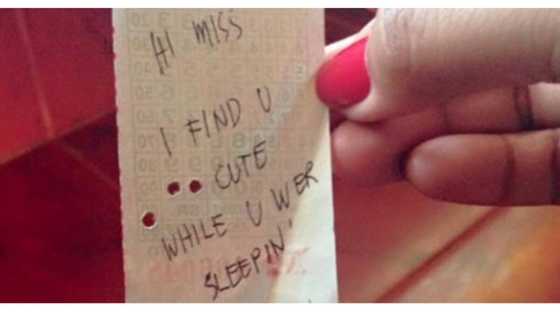 HI MISS
I FIND U
CUTE
WHILE U WER
SLEEPIN'